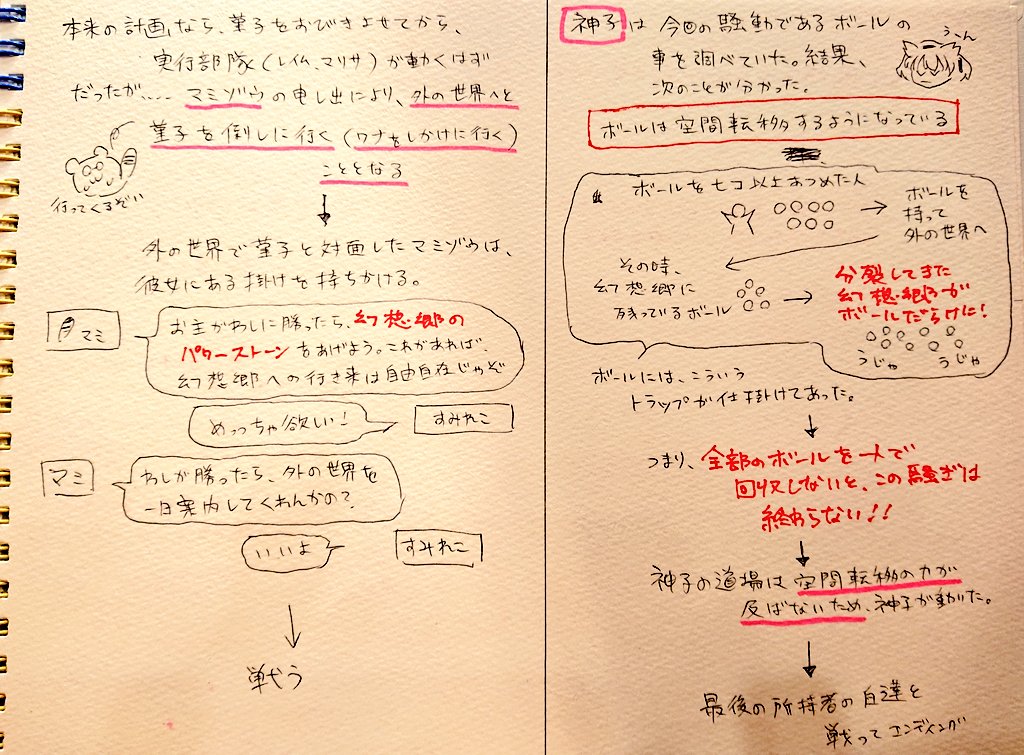 本来の計画なら、菓子をおびきよせてから、
実行部隊(レイム、マリサ)が動くはず
だったが…… マミゾウの申し出により、外の世界へと
菓子を倒しに行く(ワナをしかけに行く)
こととなる
行ってくるぞい
外の世界で菓子と対面したマミゾウは、
彼女にある掛けを持ちかける。
マミ
お主がわしに勝ったら、幻想郷の
パワーストーンをあげよう。これがあれば、
幻想郷への行き来は自由自在じゃぞ
めっちゃ欲しい!
すみれこ
マミ
わしが勝ったら、外の世界を
一日案内してくれんかの?
いいよ
すみれこ
戦う
神子は今回の騒動であるボールの
事を調べていた。結果、
次のことが分かった。
うーん
ボールは空間転移するようになっている
ボールを七コ以上あつめた人
ボールを
持って
外の世界へ
その時、
幻想郷に
残っているボール
分裂してまた
幻想郷が
ボールだらけに!
うじゃ うじゃ
ボールには、こういう
トラップが仕掛けてあった。
つまり、全部のボールを一人で
回収しないと、この騒ぎは
終わらない!!
神子の道場は空間転移の力が
及ばないため、神子が動いた。
最後の所持者の白蓮と
戦ってエンディング